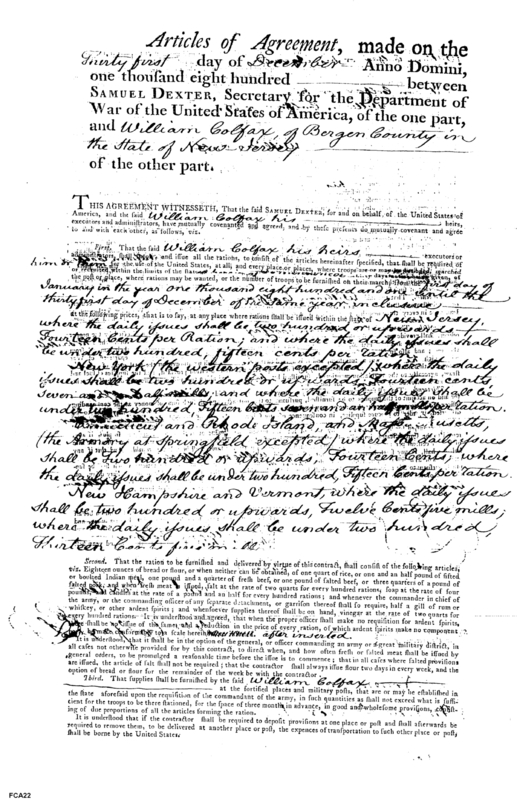 Articles of Agreement, made on the
Thirty first day of December Anno Domini,
one thouſand eight hundred between
SAMUEL DEXTER, Secretary for the Department of
War of the United States of America, of the one part,
and William Colfax, of Bergen County in
the State of New Jersey
of the other part.
THIS AGREEMENT WITNESSETH, That the ſaid SAMUEL DEXTER, for and on behalf, of the United States of
America, and the ſaid William Colfax his heirs,
executors and adminiſtrators, have mutually covenanted and agreed, and by theſe preſents do mutually covenant and agree
to and with each other, as follows, viz.
First. That the ſaid William Colfax his heirs executors or
adminiſtrators, ſhall and iſſue all the rations, to conſiſt of the articles hereinafter ſpecified, that ſhall be required of
him or them for the uſe of the United States, at all and every place or places, where troops are or may be
within the limits of the
or place, where rations may be wanted, or the number of troops to be furniſhed on their march, from the first day of
January in the year one thousand eight hundred and one until the
thirty first day of December of the same year inclusive
at the following prices, that is to ſay, at any place where rations ſhall be iſſued within the State of New Jersey,
where the daily iſsues shall be two hundred or upwards
Fourteen Cents per Ration; and where the daily iſsues shall
be under two hundred, fifteen cents per ration.
New York (the western posts excepted) where the daily
iſsues shall be two hundred or upwards, Fourteen cents
seven and half mills and where the daily iſsues shall be
under two hundred, Fifteen Cents seven and an half mills per ration.
Connecticut and Rhode Island, and
(the Armory at Springfield excepted) where the daily iſsues
shall be Two hundred or upwards, Fourteen Cents, where
the daily iſsues shall be under two hundred, Fifteen Cents, per ration.
New Hampshire and Vermont, where the daily iſsues
shall be two hundred or upwards, Twelve Cents five mills;
where the daily iſsues shall be under two hundred,
Thirteen Cents five
Second. That the ration to be furniſhed and delivered by virtue of this contract, ſhall conſiſt of the following articles,
viz. Eighteen ounces of bread or flour, or when neither can be obtained, of one quart of rice, or one and an half pound of ſifted
or boulted Indian meal, one pound and a quarter of freſh beef, or one pound of ſalted beef, or three quarters of a pound of
ſalted pork, and when freſh meat is iſſued, ſalt at the rate of two quarts for every hundred rations, ſoap at the rate of four
pounds, and candles at the rate of a pound and an half for every hundred rations; and whenever the commander in chief of
the army, or the commanding officer of any ſeparate detachment, or garriſon thereof ſhall ſo require, half a gill of rum or
whiſkey, or other ardent ſpirits; and whenſoever ſupplies thereof ſhall be on hand, vinegar at the rate of two quarts for
every hundred rations. It is underſtood and agreed, that when the proper officer ſhall make no requiſition for ardent ſpirits,
ſhall be no iſſue of the ſame, and a deduction in the price of every ration, of which ardent ſpirits make no component
conformable to a ſcale herein after inserted
It is underſtood, that it ſhall be in the option of the general, or officer commanding an army or great military diſtrict, in
all caſes not otherwiſe provided for by this contract, to direct when, and how often freſh or ſalted meat ſhall be iſſued by
general orders, to be promulged a reaſonable time before the iſſue is to commence; that in all caſes where ſalted proviſions
are iſſued, the article of ſalt ſhall not be required; that the contractor ſhall always iſſue flour two days in every week, and the
option of bread or flour for the remainder of the week be with the contractor.
Third. That ſupplies ſhall be furniſhed by the ſaid William Colfax
at the fortified places and military poſts, that are or may be eſtabliſhed in
the ſtate aforeſaid upon the requiſition of the commandant of the army, in ſuch quantities as ſhall not exceed what is ſuffi-
cient for the troops to be there ſtationed, for the ſpace of three months in advance, in good and wholeſome proviſions, conſiſt-
ing of due proportions of all the articles forming the ration.
It is underſtood that if the contractor ſhall be required to depoſit proviſions at one place or poſt and ſhall afterwards be
required to remove them, to be delivered at another place or poſt, the expences of tranſportation to ſuch other place or poſt,
ſhall be borne by the United States.
FCA22